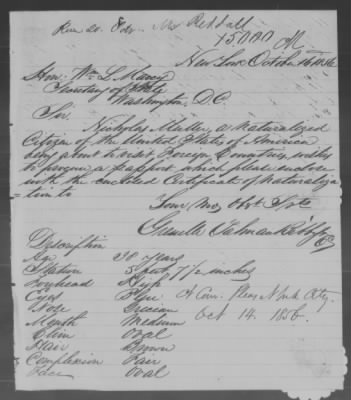 Rec 20. Oct.
15,000
New York October 16 1856
Hon. Wm L. Marcy
Secretary of State
Washington, D.C.
Sir.
Nicholas Muller, a naturalized
Citizen of the United States of America
being about to visit Foreign Countries, wishes
to procure a Passport which please enclose
with the enclosed Certificate of Naturaliza
tion to
Your Mo. Obt. Svts
Description
Age 28 years
Stature 5 feet, 7 1/2 inches
Forehead High
Eyes Blue
Nose Grecian
Mouth Medium
Chin Oval
Hair Brown
Complexion Fair
Face Oval
Ct Com. Pleas N York City
Oct 14. 1856.